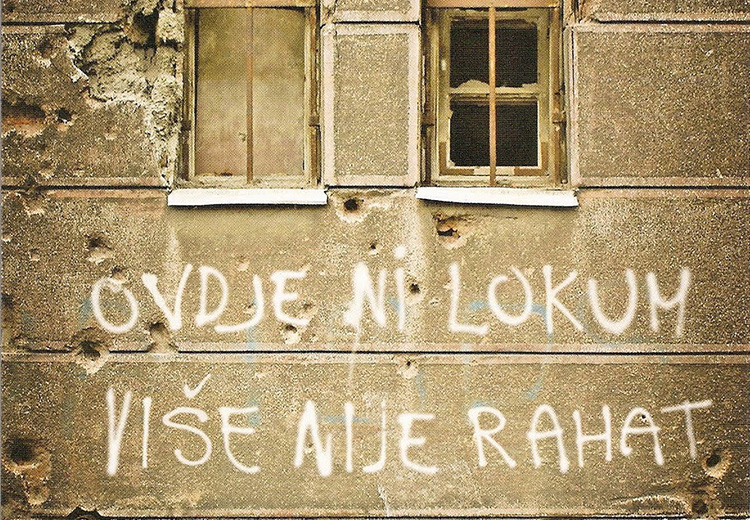 OVDJE Ni LOKUM
VIŠE NIJE RAHAT